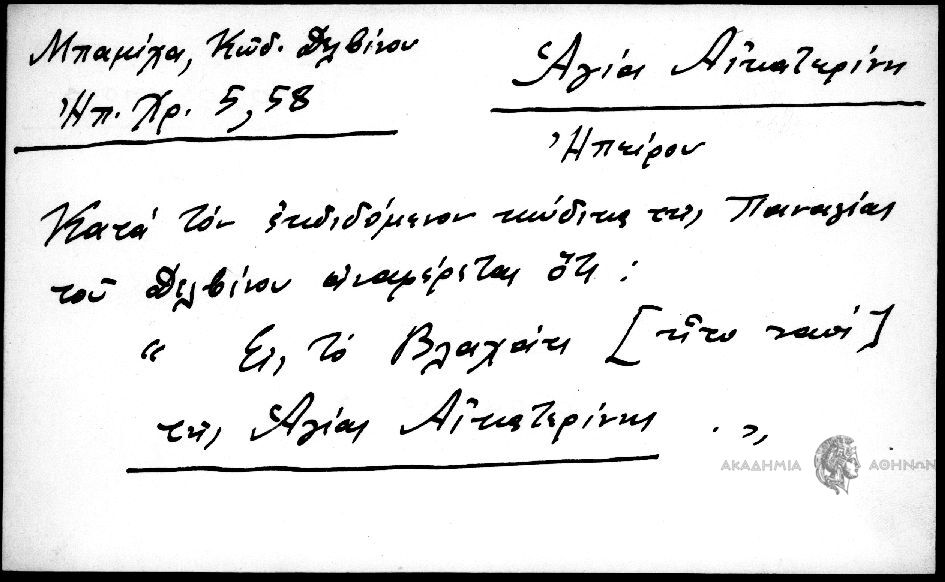 Μπαμίχα, Κῶδ. Δελβίνου
Ἠπ. Χρ. 5, 58
Ἁγία Αἰκατερίνη
Ἠπείρου
Κατά τόν ἐκδιδόμενον κώδικα τῆς Παναγίας
τοῦ Δελβίνου ἀναφέρεται ὅτι :
" Εἰς τό Βλαχάτι [ἦτο ναός]
τῆς Ἁγίας Αἰκατερίνης . "
ΑΚΑΔΗΜΙΑ ΑΘΗΝΩΝ